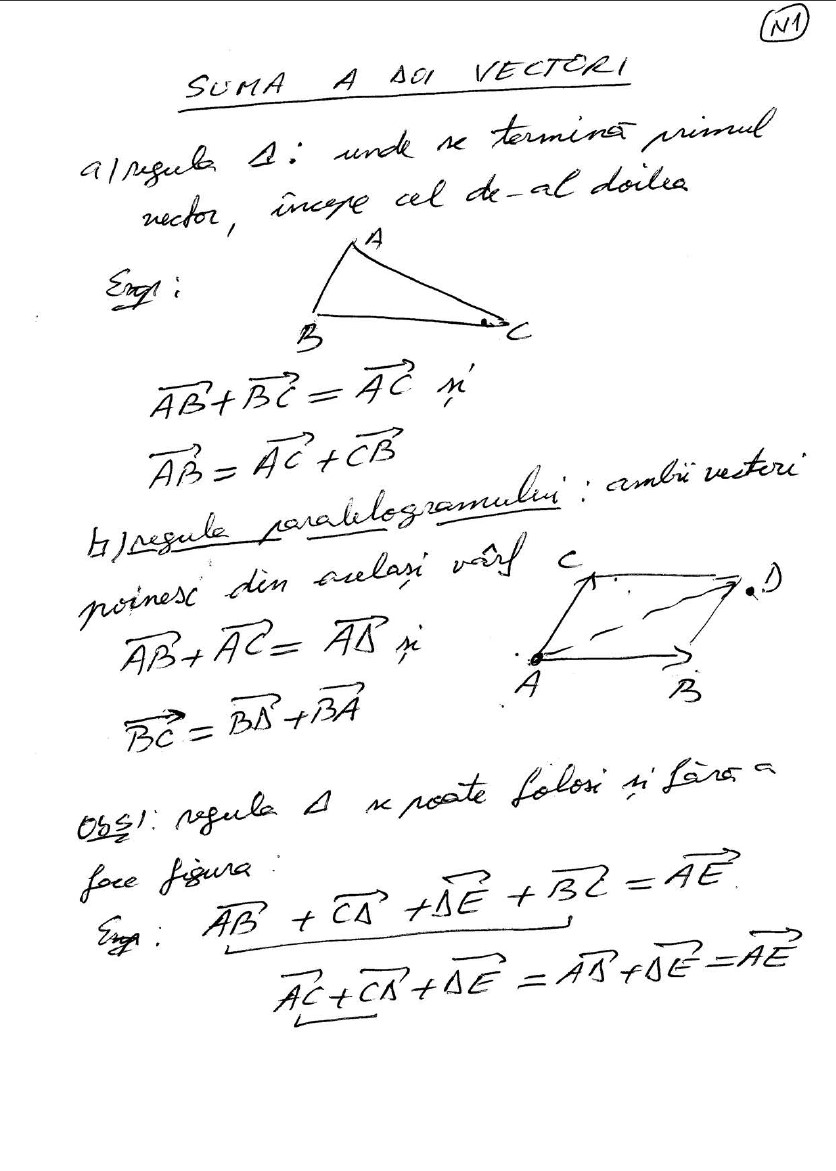 N1
SUMA A DOI VECTORI
a) regula Δ: unde se termină primul
vector, începe cel de-al doilea
Exp:
A
B
C
AB + BC = AC și
AB = AC + CB
b) regula paralelogramului: ambii vectori
pornesc din același vârf
C
D
AB + AC = AD și
A
B
BC = BD + BA
Obs!: regula Δ se poate folosi și fără a
face figura:
Exp: AB + CD + DE + BC = AE
AC + CD + DE = AD + DE = AE